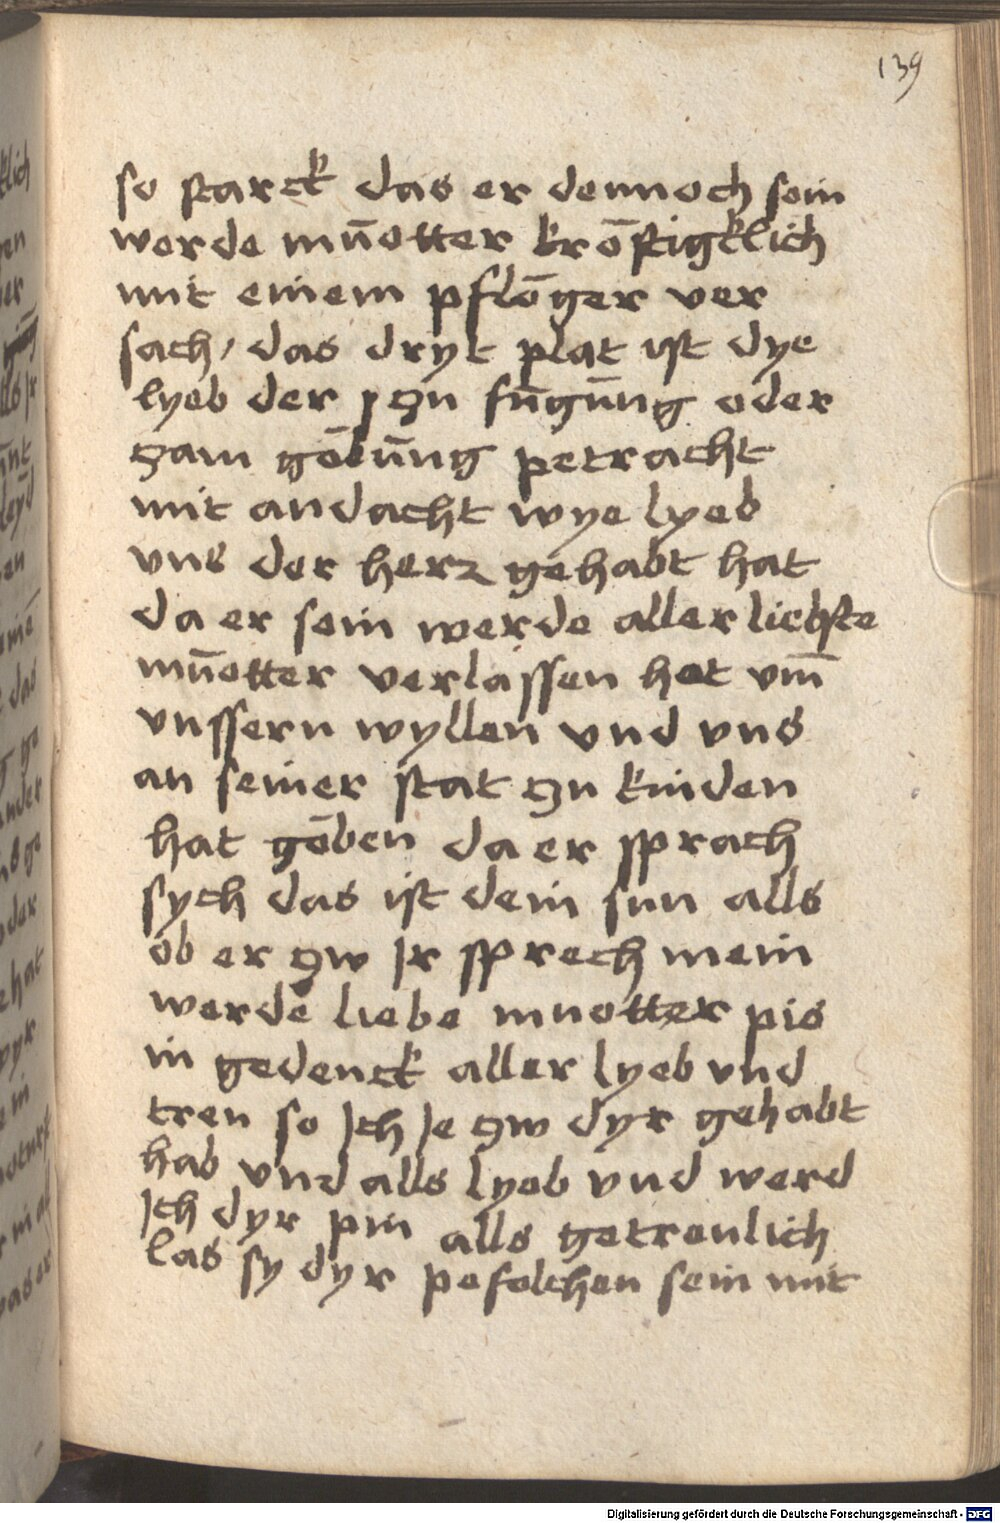 139
so starck das er dennoch sein
werde mūotter krōftigklich
mit einem pflōger ver
sach / das dryt plat ist dye
lyeb der zu fūgūng oder
zam gōbūng petracht
mit andacht wye lyeb
vns der herz gehabt hat
da er sein werde aller liebste
mūotter verlassen hat vm̄
vnssern wyllen vnd vns
an seiner stat zu kinden
hat gōben da er sprach
sych das ist dein sun alls
ob er zw Jr sprech mein
werde liebe muotter pis
in gedenck aller lyeb vnd
treu so Jch Je zw dyr gehabt
hab vnd alls lyeb vnd werd
Jch dyr pin alls getreulich
las sy dyr pefolchen sein mit
Digitalisierung gefördert durch die Deutsche Forschungsgemeinschaft - DFG